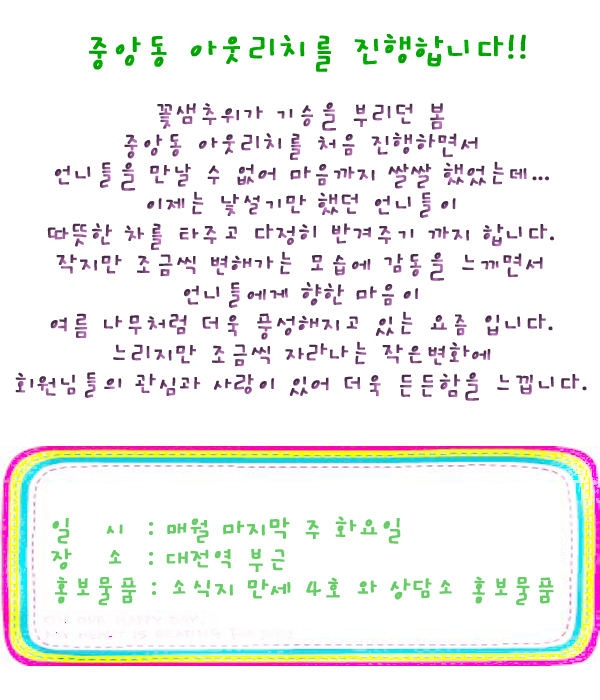 중앙동 아웃리치를 진행합니다!!
꽃샘추위가 기승을 부리던 봄
중앙동 아웃리치를 처음 진행하면서
언니들을 만날 수 없어 마음까지 쌀쌀 했었는데...
이제는 낯설기만 했던 언니들이
따뜻한 차를 타주고 다정히 반겨주기 까지 합니다.
작지만 조금씩 변해가는 모습에 감동을 느끼면서
언니들에게 향한 마음이
여름 나무처럼 더욱 풍성해지고 있는 요즘 입니다.
느리지만 조금씩 자라나는 작은변화에
회원님들의 관심과 사랑이 있어 더욱 든든함을 느낍니다.
일 시 : 매월 마지막 주 화요일
장 소 : 대전역 부근
홍보물품 : 소식지 만세 4호 와 상담소 홍보물품